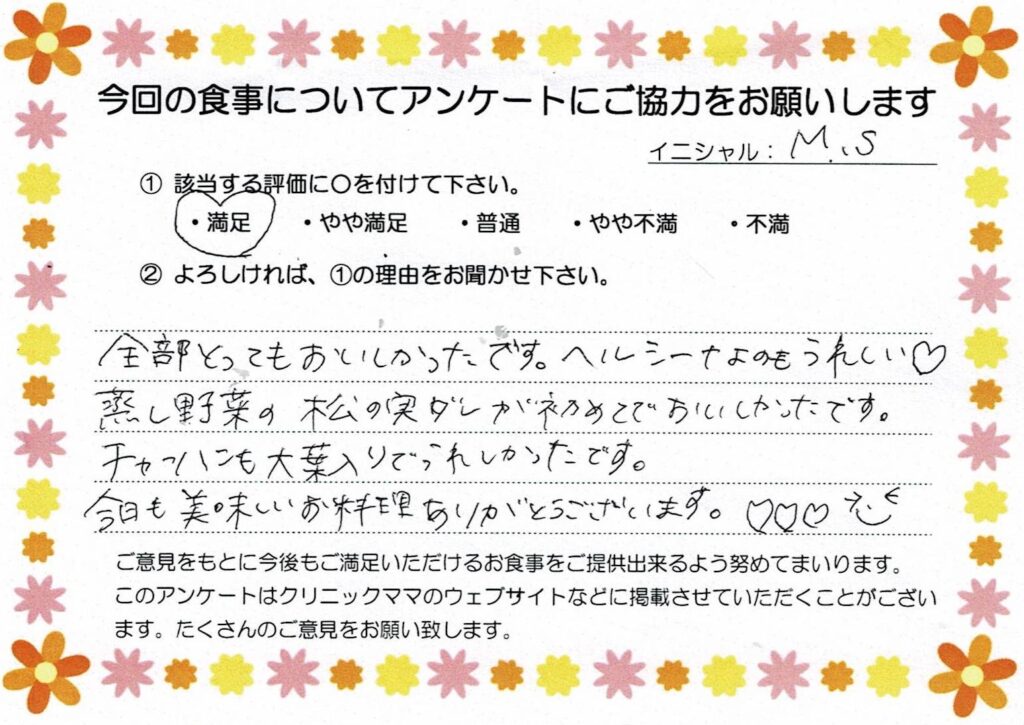 今回の食事についてアンケートにご協力をお願いします
イニシャル： M.S
① 該当する評価に〇を付けて下さい。
・満足 ・やや満足 ・普通 ・やや不満 ・不満
② よろしければ、①の理由をお聞かせ下さい。
全部とってもおいしかったです。ヘルシーなのもうれしい♡
蒸し野菜の松の実ダレが初めてでおいしかったです。
チャーハンも大葉入りでうれしかったです。
今日も美味しいお料理ありがとうございます。♡♡♡
ご意見をもとに今後もご満足いただけるお食事をご提供出来るよう努めてまいります。
このアンケートはクリニックママのウェブサイトなどに掲載させていただくことがござい
ます。たくさんのご意見をお願い致します。